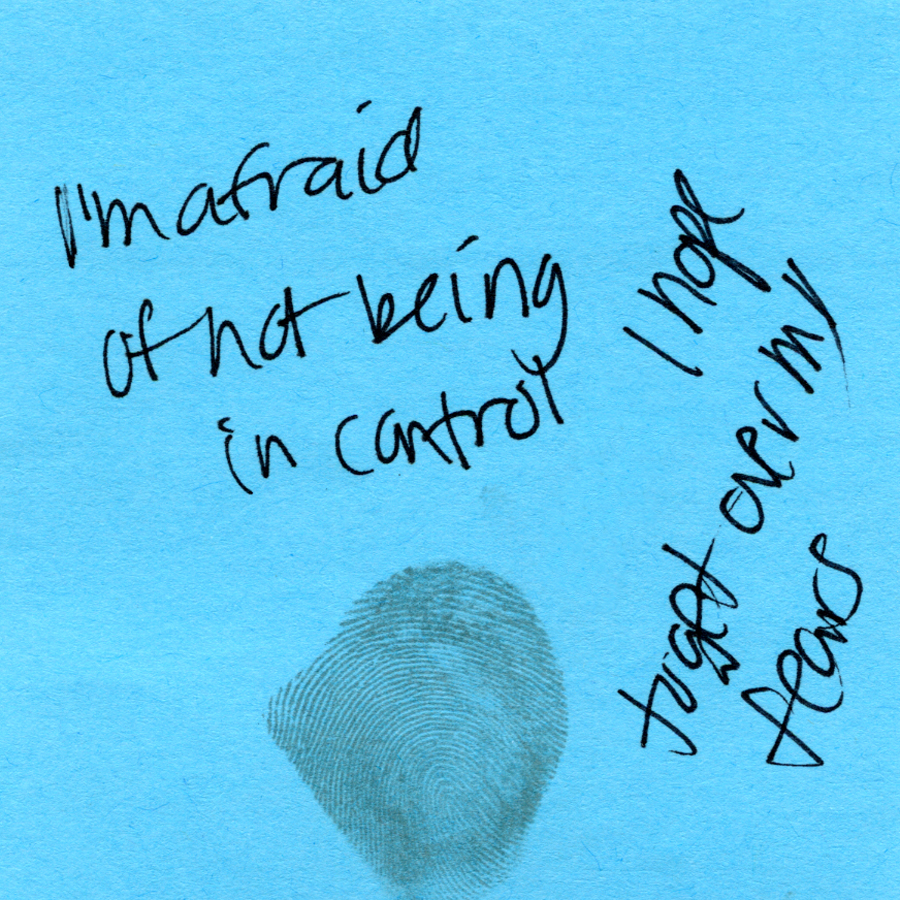 I'm afraid
of not being
in control
I hope
to get over my
fears